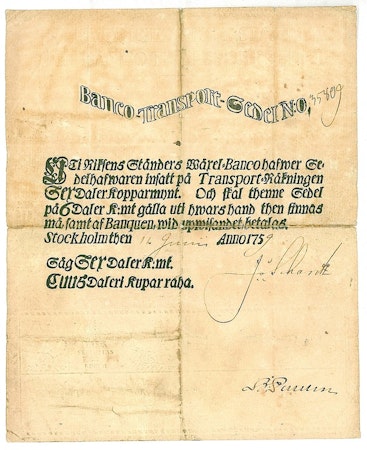 Banco-Transport-Sedel N:o, 35809
UTi Riksens Ständers Wäxel-Banco hafwer Se-
delhafwaren insatt på Transport-Räkningen
Sex Daler Kopparmynt. Och skal thenne Sedel
på 6 Daler K:mt gälla uti hwars hand then finnas
må, samt af Banquen, wid upwisandet, betalas.
Stockholm then 12 Junii Anno 1759
Säg Sex Daler K:mt.
Cuus Daleri Kupar raha.